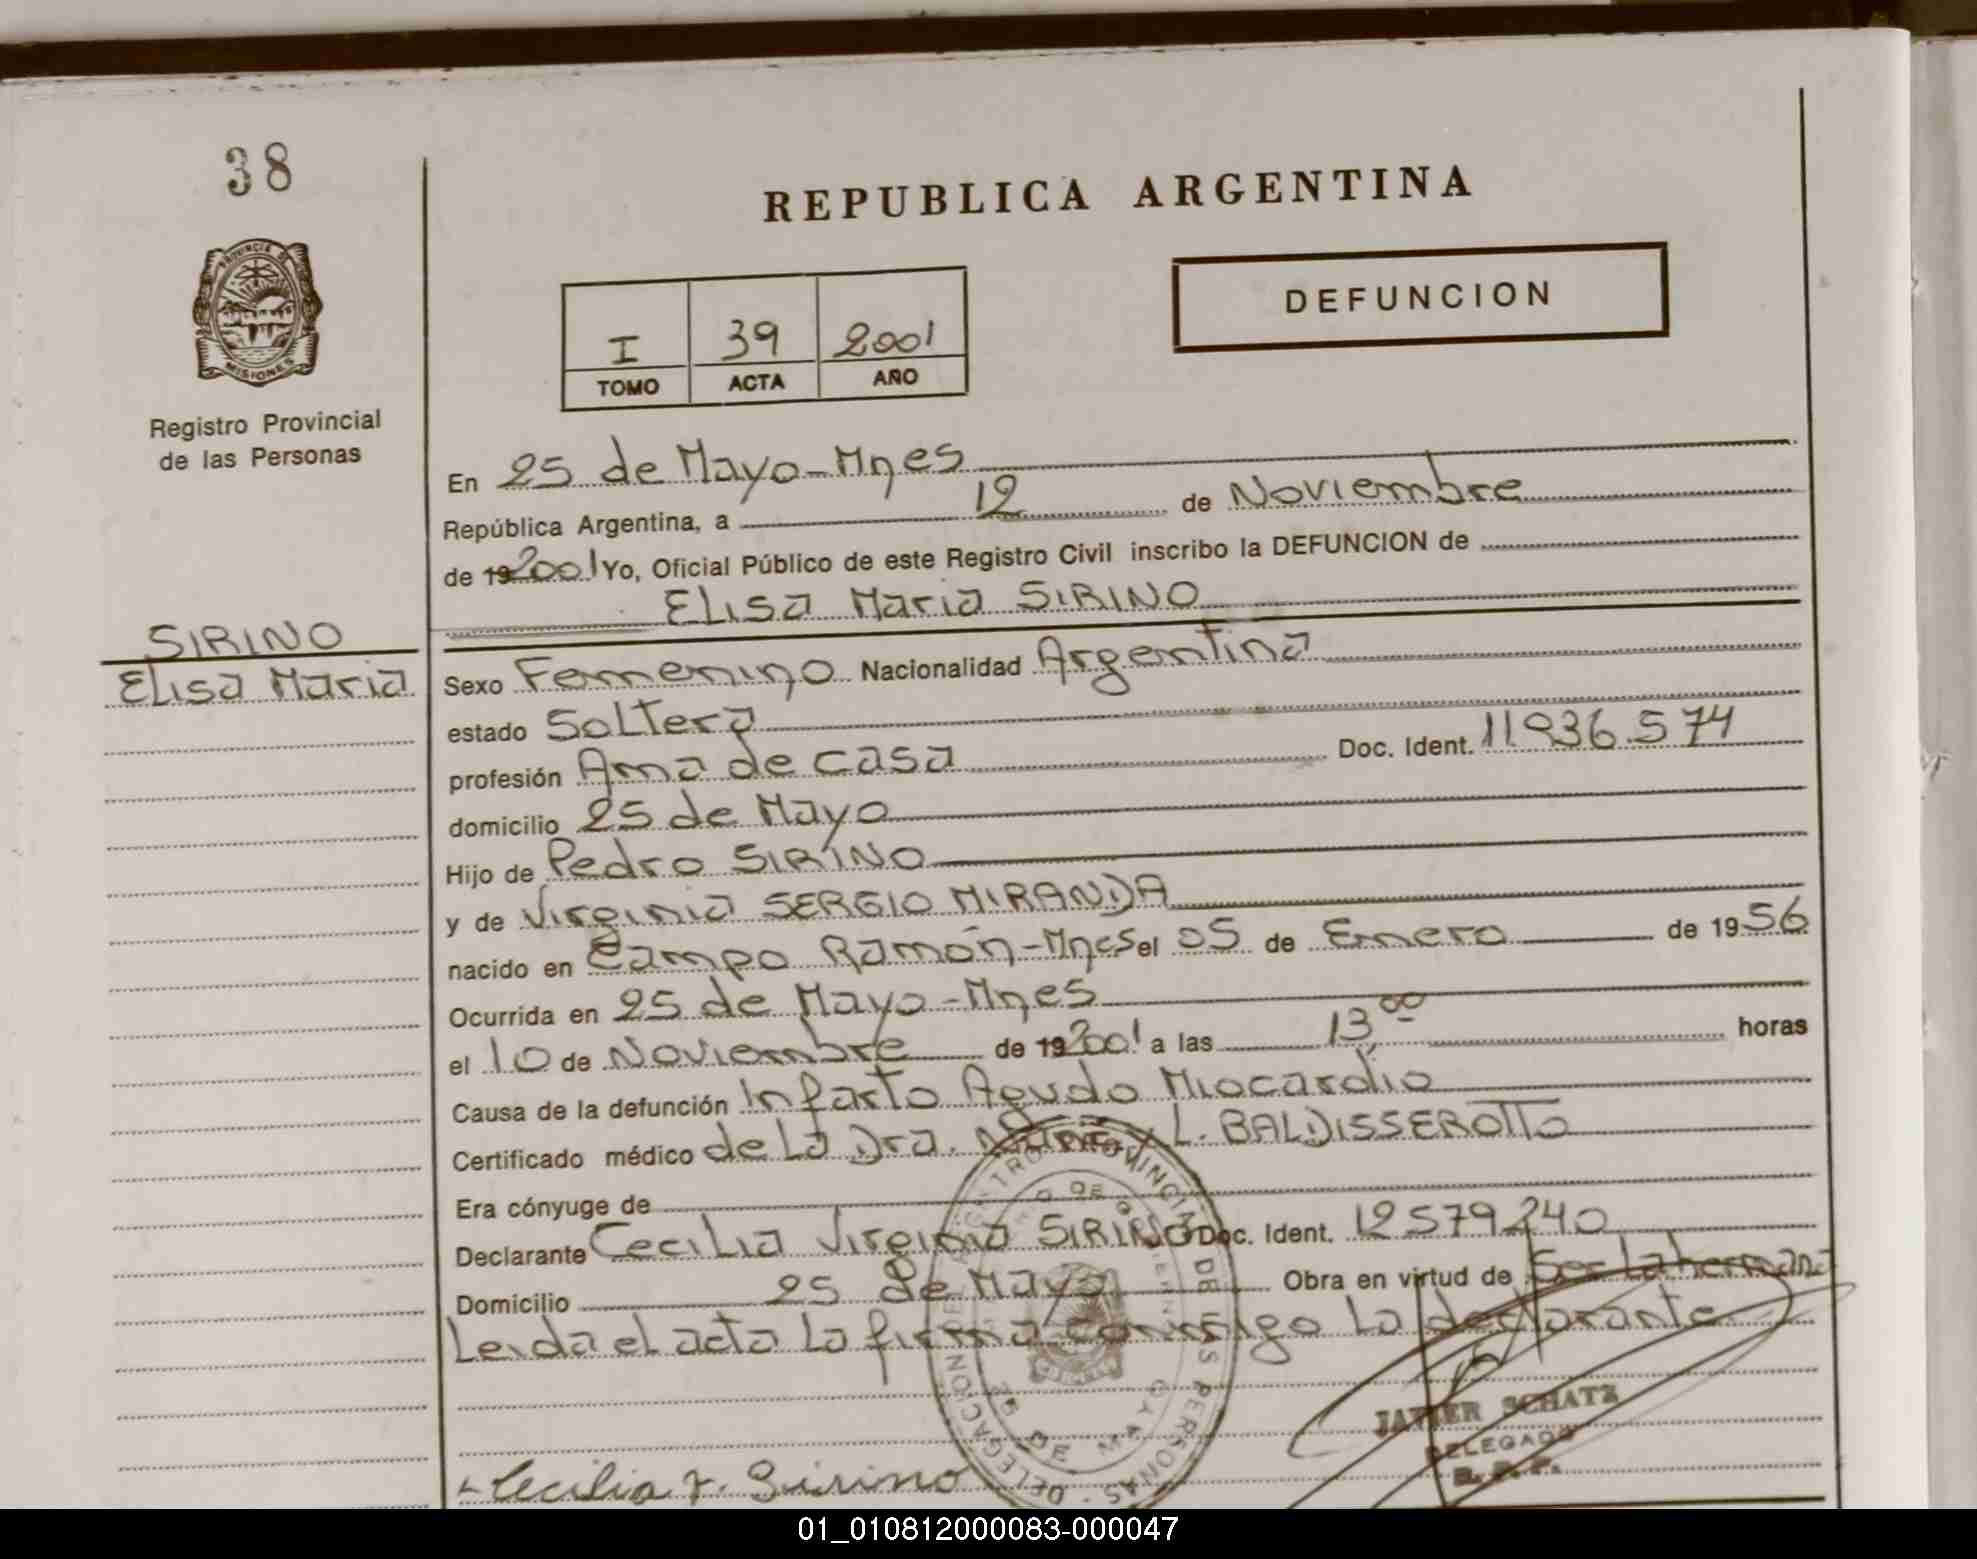 38
REPUBLICA ARGENTINA
PROVINCIA DE
MISIONES
DEFUNCION
I 39 2001
TOMO ACTA AÑO
Registro Provincial
de las Personas
En 25 de Mayo-Mnes
República Argentina, a 12 de Noviembre
de 19 2001 Yo, Oficial Público de este Registro Civil inscribo la DEFUNCION de
Elisa Maria SIRINO
SIRINO
Elisa Maria
Sexo Femenino Nacionalidad Argentina
estado Soltera
profesión Ama de casa Doc. Ident. 11.936.574
domicilio 25 de Mayo
Hijo de Pedro SIRINO
y de Virginia SERGIO MIRANDA
nacido en Campo Ramón-Mnes el 05 de Enero de 1956
Ocurrida en 25 de Mayo-Mnes
el 10 de Noviembre de 19 2001 a las 13,00 horas
Causa de la defunción Infarto Agudo Miocardio
Certificado médico de la Dra. L. BALDISSEROTTO
Era cónyuge de
Declarante Cecilia Virginia SIRINO Doc. Ident. 12579240
Domicilio 25 de Mayo Obra en virtud de Ser la hermana
Leida el acta la firma conmigo la declarante
REGISTRO PROVINCIAL DE LAS PERSONAS
DELEGACION
25 DE MAYO
JAVIER SCHATZ
DELEGADO
Cecilia V. Sirino
01_010812000083-000047